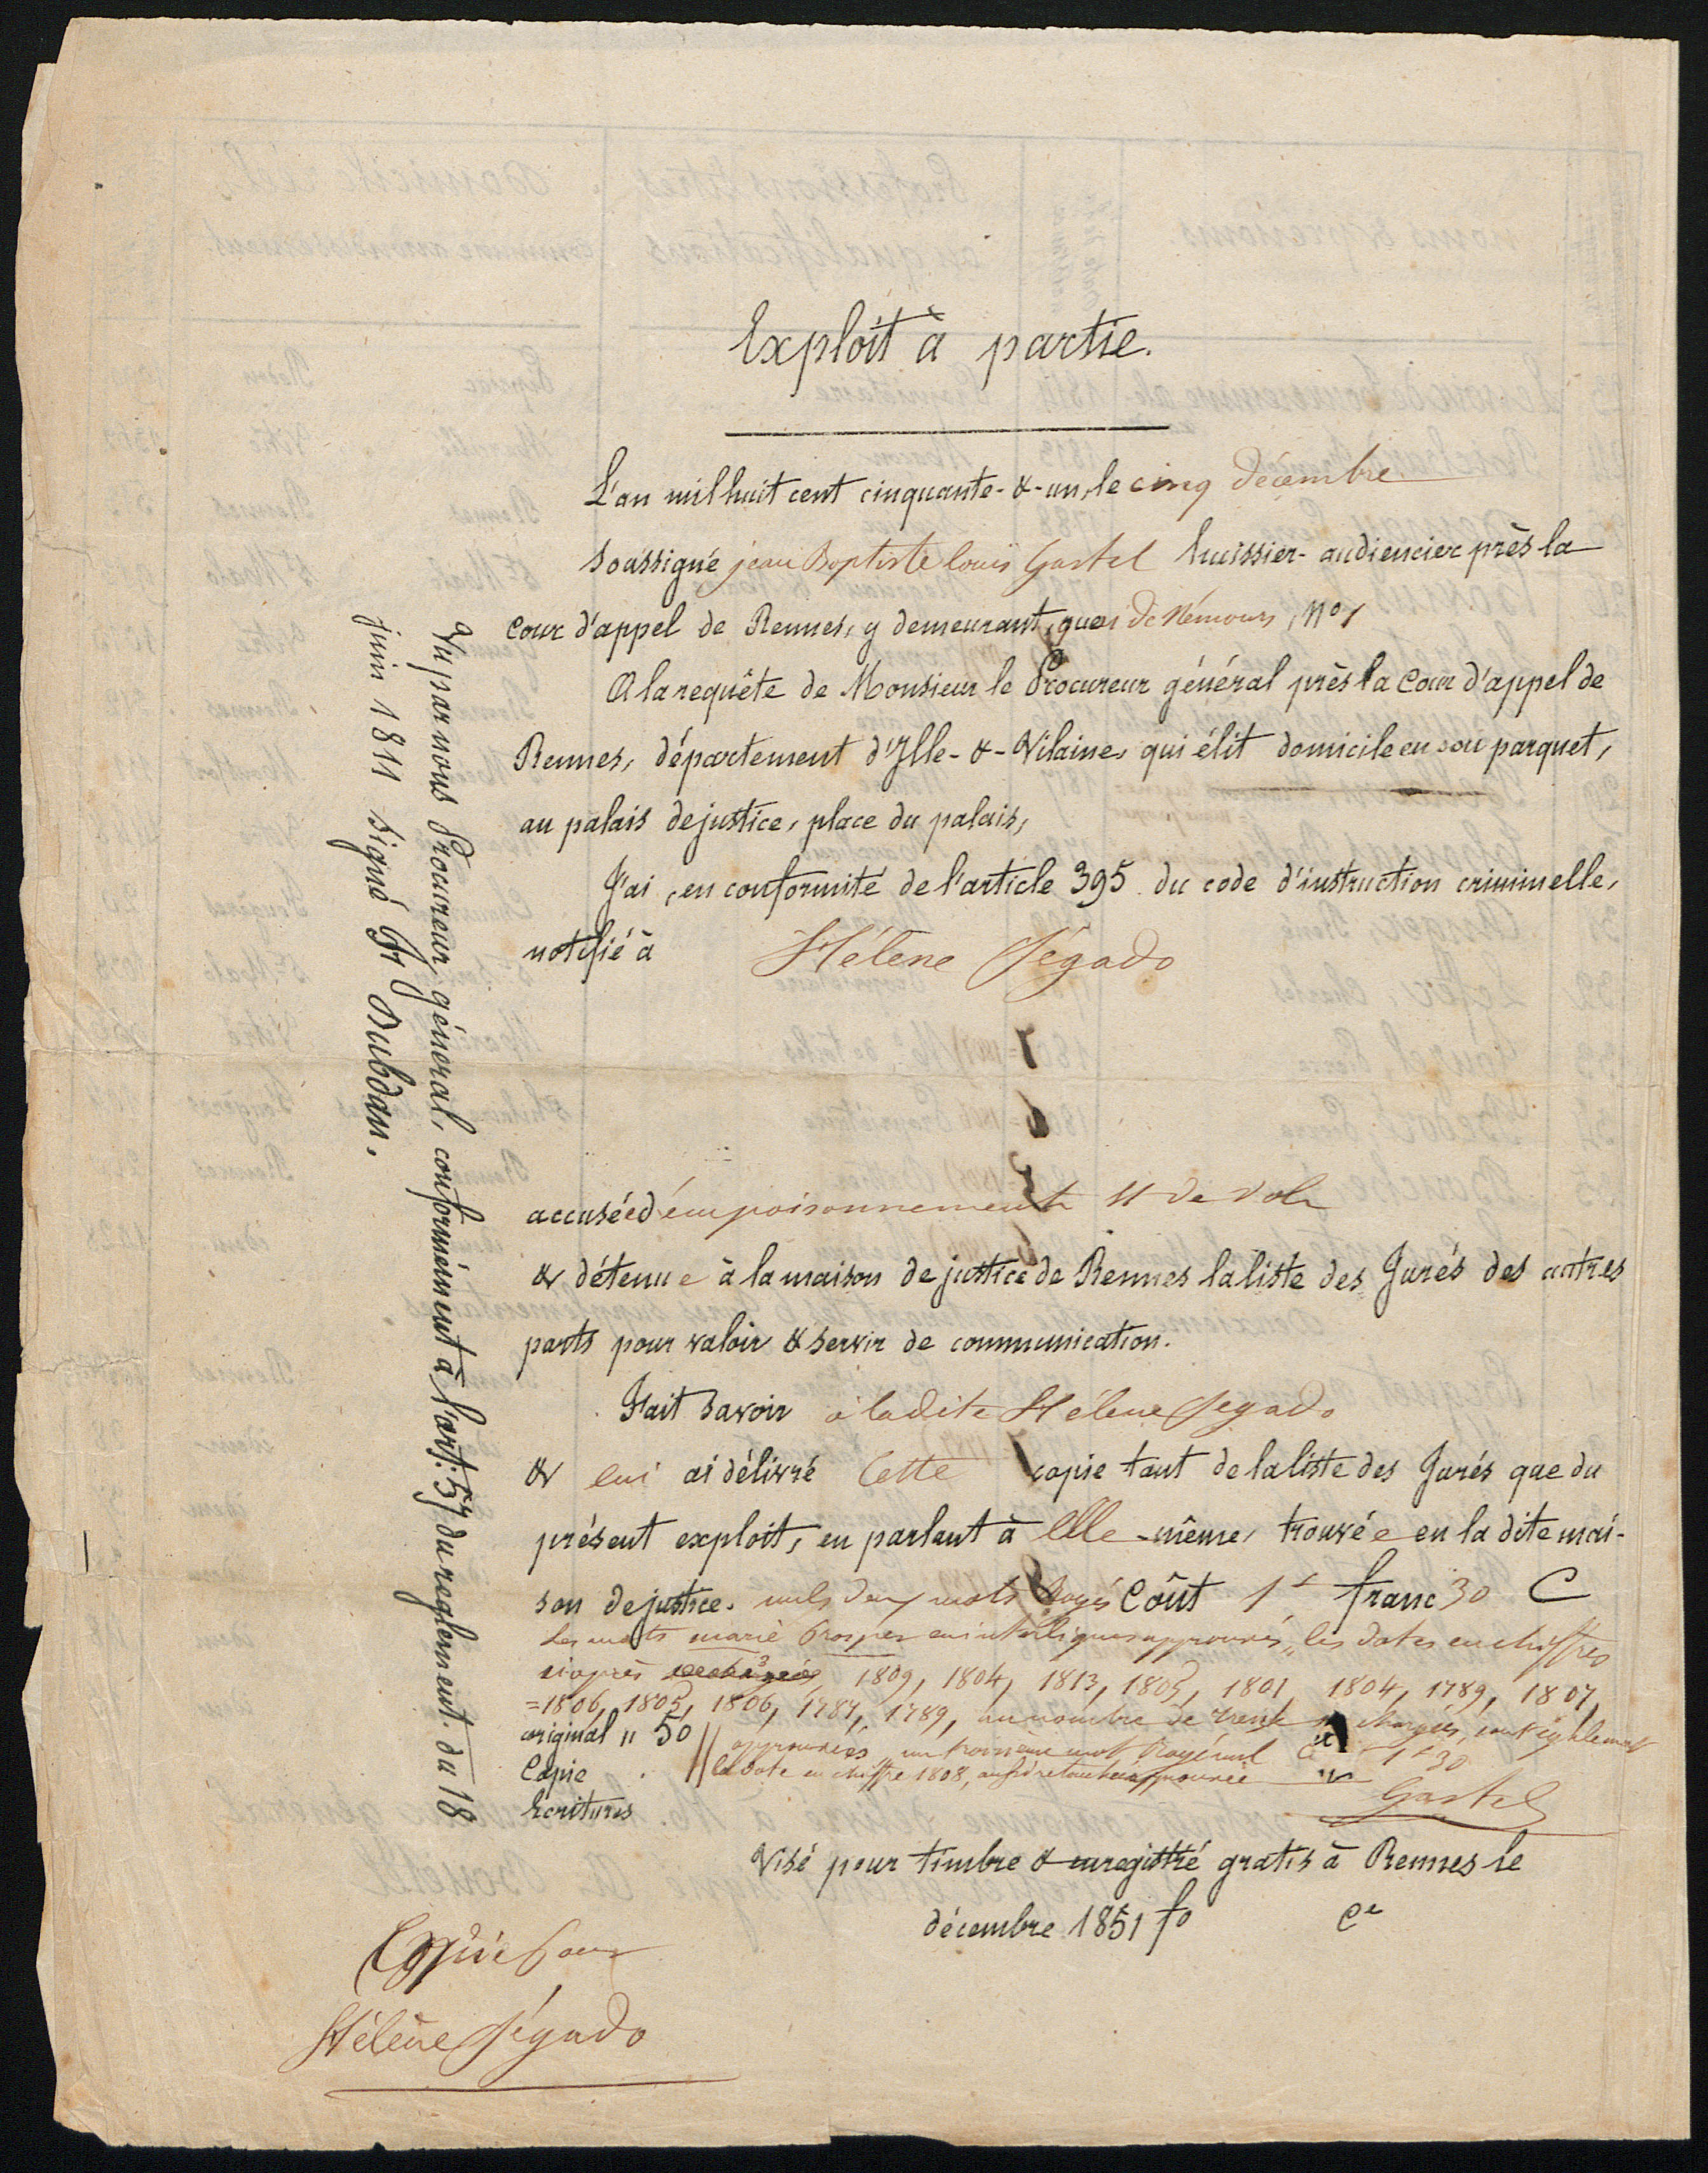 Exploit à partie.
L'an mil huit cent cinquante-&-un, le cinq décembre
soussigné jean Baptiste louis Gastel huissier-audiencier près la
Cour d'appel de Rennes, y demeurant, quai de Nemours, No 1
A la requête de Monsieur le Procureur général près la Cour d'appel de
Rennes, département d'Ille-&-Vilaine, qui élit domicile en son parquet,
au palais de justice, place du palais,
J'ai, en conformité de l'article 395 du code d'instruction criminelle,
notifié à Hélène Jégado
accusée d'empoisonnements et de vols
& détenue à la maison de justice de Rennes la liste des Jurés des autres
parts pour valoir & servir de communication.
Fait savoir à ladite Hélène Jegado
& lui ai délivré Cette copie tant de la liste des Jurés que du
présent exploit, en parlant à Elle-même, trouvée en la dite mai-
son de justice. nuls deux mots rayés Coût 1f franc 30 C
Les mots marie Prosper en interlignes approuvés, les dates en chiffres
ciaprès 1809, 1804, 1813, 1805, 1801, 1804, 1789, 1807,
=1806, 1805, 1806, 1787, 1789, au nombre de treize chargées, sont également
original " 50 approuvées, un troisième mot rayé nul 1f 30
Copie . la date en chiffre 1808, aussi retouchée approuvée
Ecritures Gastel
Visé pour timbre & enregistré gratis à Rennes le
décembre 1851 fo Ce
Copie pour
Hélène Jégado
Vu par nous Procureur général, conformément à l'art: 57 du reglement du 18
juin 1811 signé Fr Dubodan.